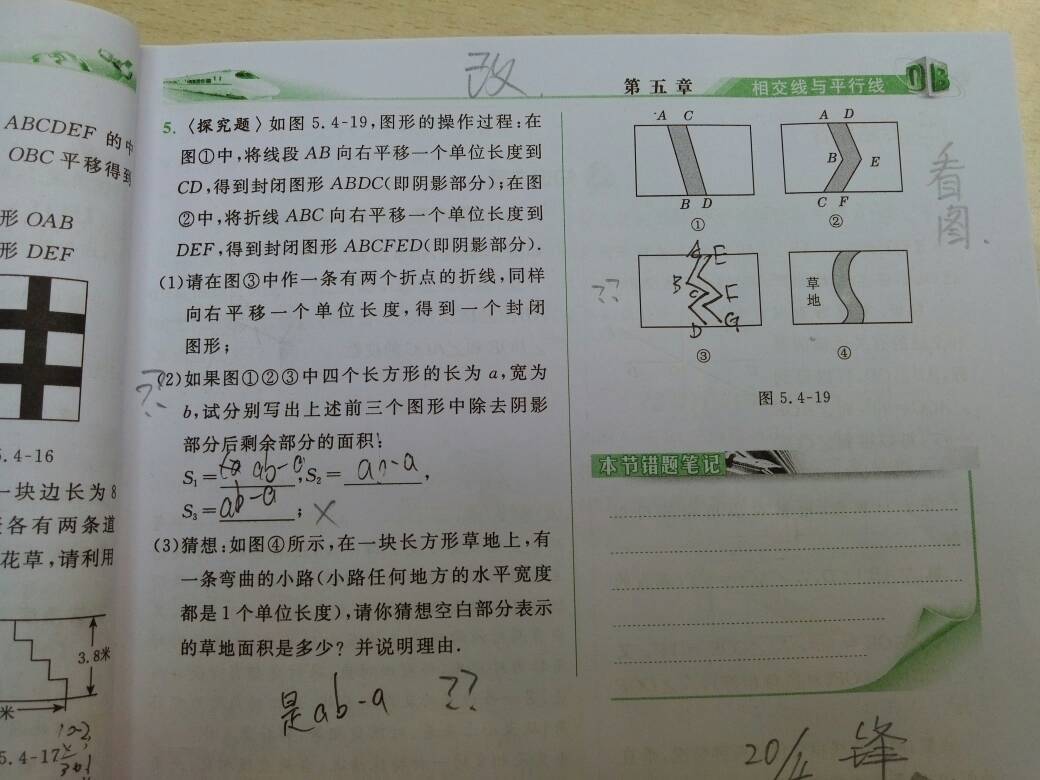 改.
第五章 相交线与平行线
ABCDEF 的中
OBC平移得到
形 OAB
形 DEF
5.4-16
一块边长为8
各有两条道
花草,请利用
3.8米
米
5.4-17
5.〈探究题〉如图5.4-19,图形的操作过程:在
图①中,将线段AB向右平移一个单位长度到
CD,得到封闭图形ABDC(即阴影部分);在图
②中,将折线ABC向右平移一个单位长度到
DEF,得到封闭图形ABCFED(即阴影部分).
(1)请在图③中作一条有两个折点的折线,同样
向右平移一个单位长度,得到一个封闭
图形;
??
(2)如果图①②③中四个长方形的长为a,宽为
b,试分别写出上述前三个图形中除去阴影
部分后剩余部分的面积:
S₁= ab-a ;S₂= ab-a ,
S₃= ab-a ; ×
(3)猜想:如图④所示,在一块长方形草地上,有
一条弯曲的小路(小路任何地方的水平宽度
都是1个单位长度),请你猜想空白部分表示
的草地面积是多少?并说明理由.
是ab-a ??
A C
B D
①
A D
B E
C F
②
看图.
??
A E
B C F
D G
③
草地
④
图 5.4-19
本节错题笔记
20/4 锋